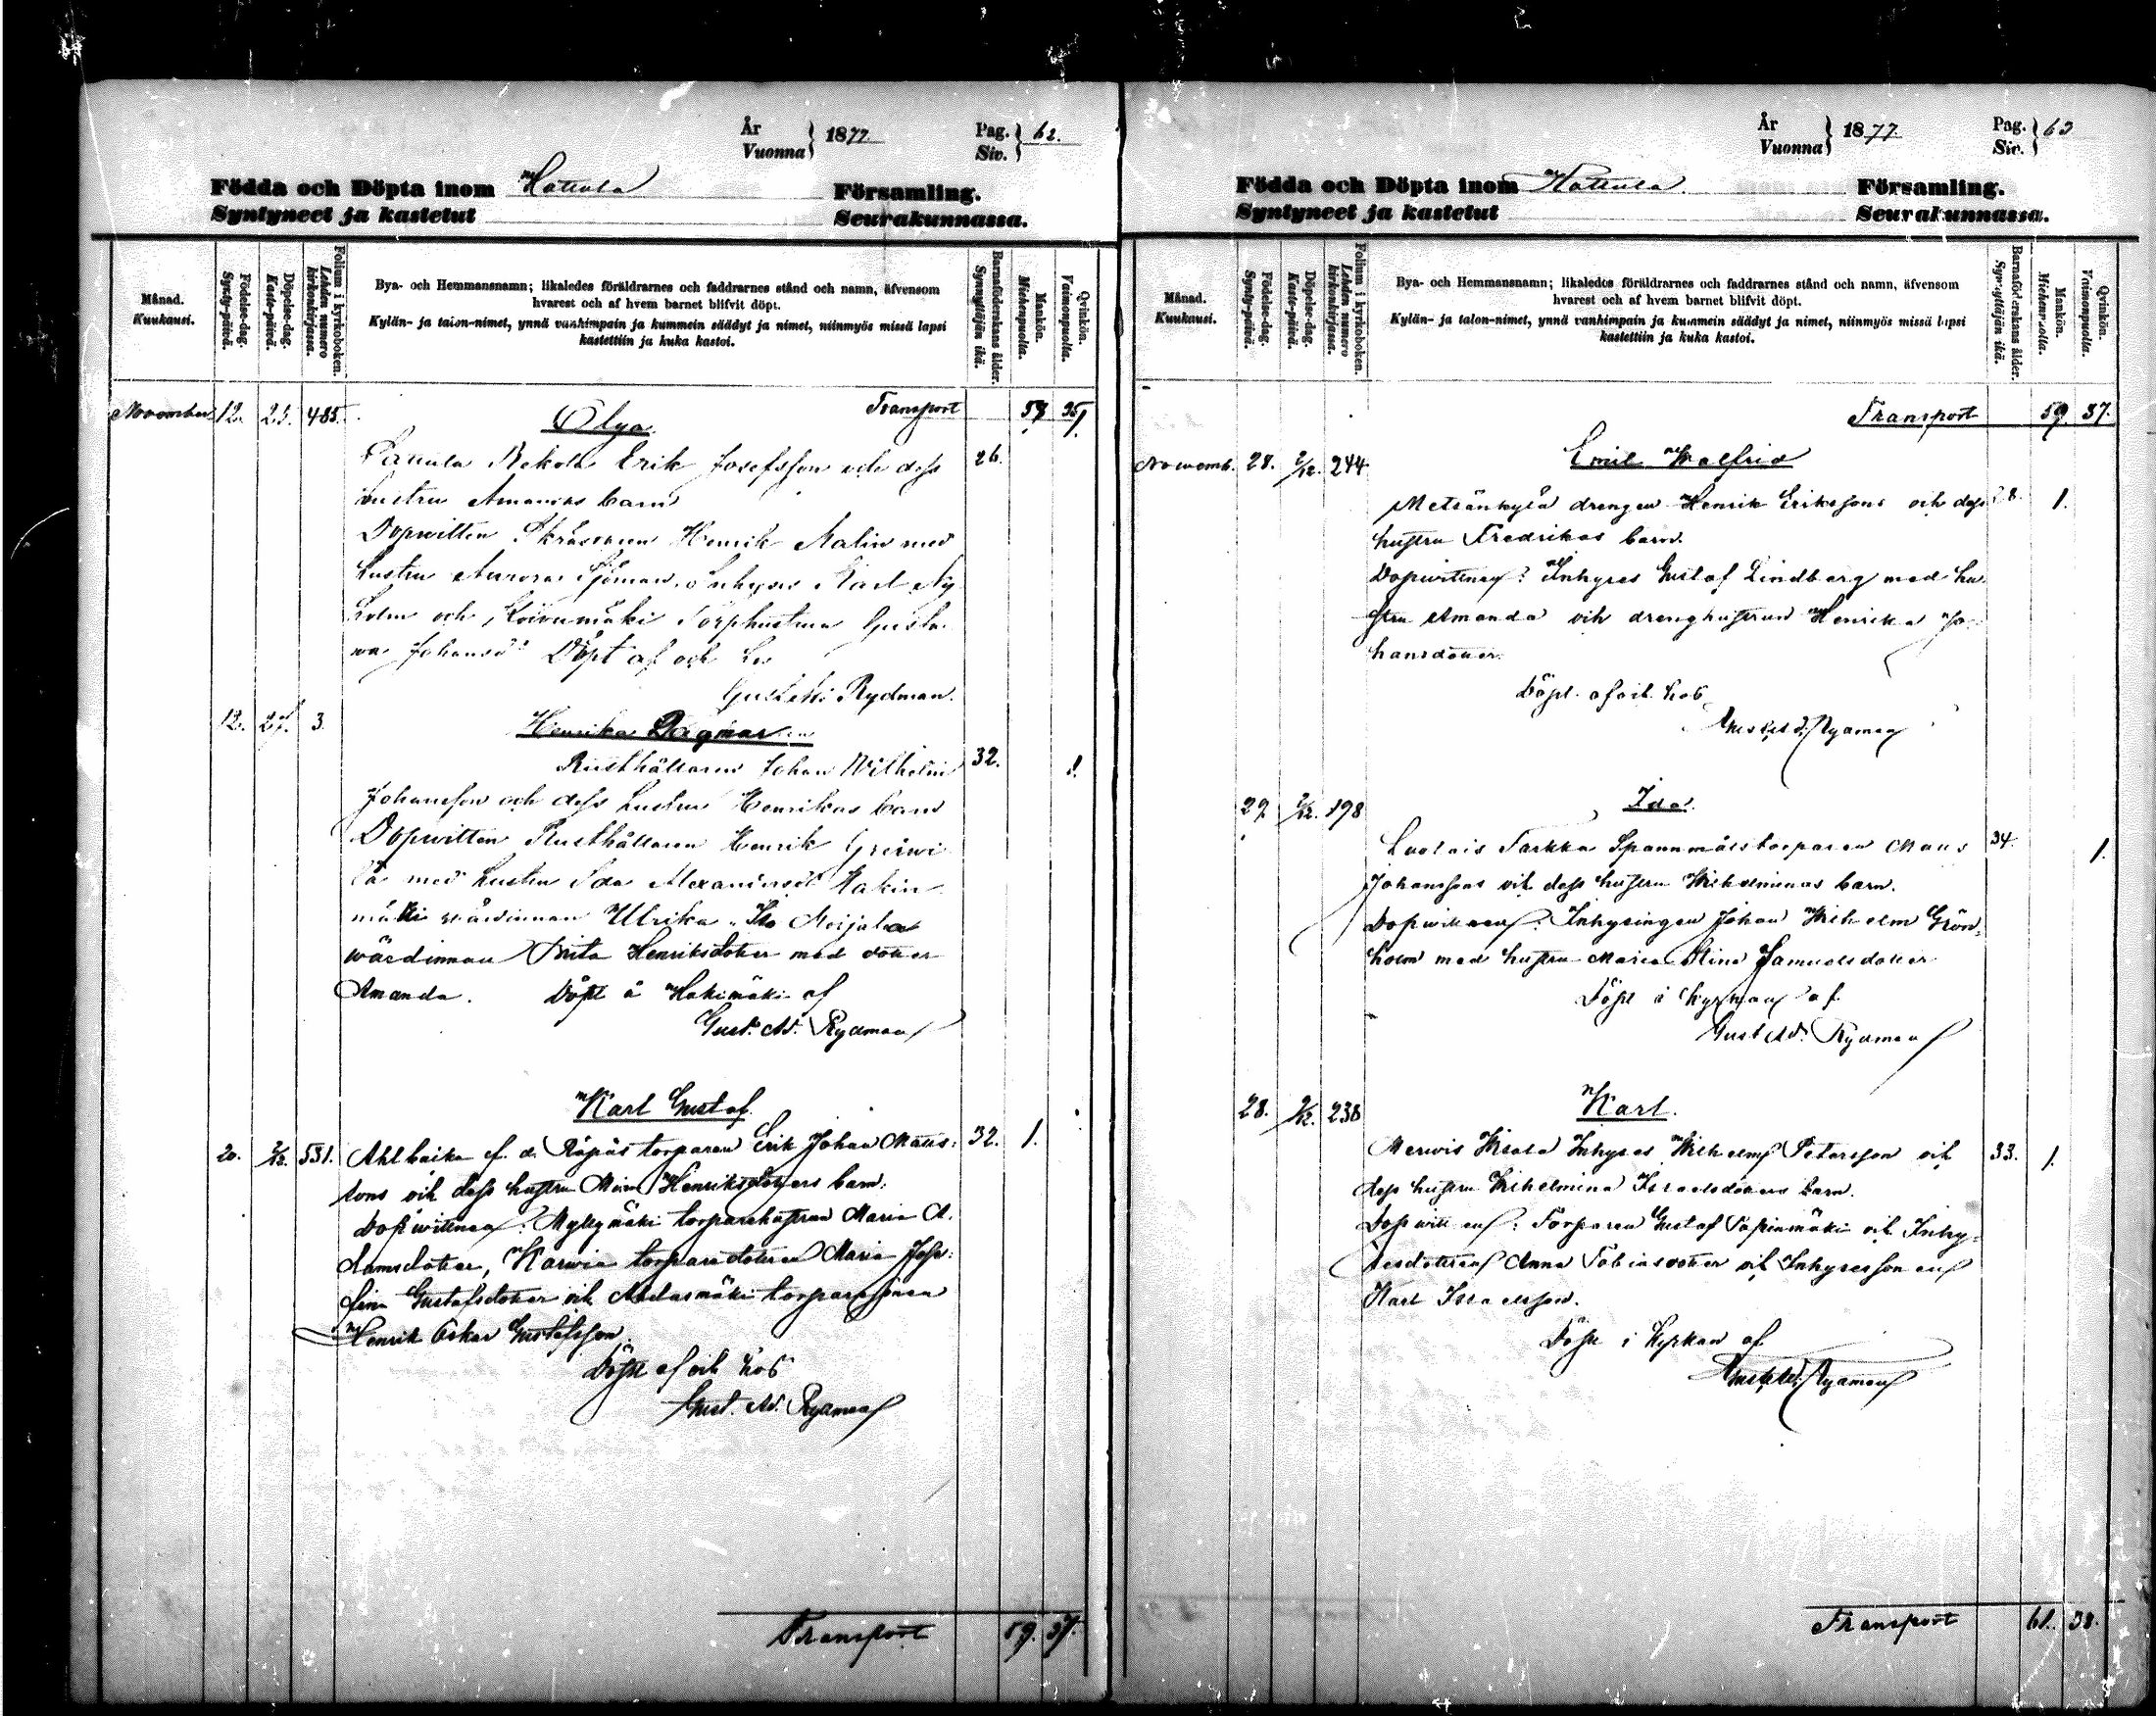 År
Vuonna } 1877
Pag.
Siv. } 62.
Födda och Döpta inom Hattula Församling.
Syntyneet ja kastetut Seurakunnassa.
Månad.
Kuukausi.
Födelse-dag.
Synty-päivä.
Döpelse-dag.
Kaste-päivä.
Folium i kyrkoboken.
Lehden numero
kirkonkirjassa.
Bya- och Hemmansnamn; likaledes föräldrarnes och faddrarnes stånd och namn, äfvensom
hvarest och af hvem barnet blifvit döpt.
Kylän- ja talon-nimet, ynnä vanhimpain ja kummein säädyt ja nimet, niinmyös missä lapsi
kastettiin ja kuka kastoi.
Barnaföderskans ålder.
Synnyttäjän ikä.
Mankön.
Miehenpuolta.
Qvinkön.
Vaimonpuolta.
November 12. 25. 485. Transport
Olga
Erik Josefsson och dess 26.
hustru Amandas barn
Dopwittnen Henrik Malin med
hustru Aurora Sjöman. Inhyses Karl Ny
holm och Koivumäki Torphustrun Gusta
va Johansd: Döpt af och hos
Gust. Ad. Rydman.
12. 27. 3. Henrika Dagmar
Rusthållaren Johan Wilhelm 32. 1.
Johansson och dess hustru Henrikas barn
Dopwittnen Rusthållaren Henrik
lä med hustru Ida Alexandersd:
mäki wärdinnan Ulrika Meijala
wärdinnan Brita Henriksdoter med doter
Amanda. Döpt å Hakimäki af
Gust. Ad. Rydman
Karl Gustaf.
20. 2/12. 531. Ahlbaika f. d. torparen Erik Johan Matts: 32. 1.
sons och dess hustru Henriksdoters barn.
Dopwittnen: Myllymäki torparehustrun Maria A.
damsdoter, torparedoteren Maria Jose:
fina Gustafsdoter och torparesonen
Henrik Oskar Gustafsson.
Döpt af och hos
Gust. Ad. Rydman
Transport 59. 37.
År
Vuonna } 1877.
Pag.
Siv. } 63
Födda och Döpta inom Hattula. Församling.
Syntyneet ja kastetut Seurakunnassa.
Månad.
Kuukausi.
Födelse-dag.
Synty-päivä.
Döpelse-dag.
Kaste-päivä.
Folium i kyrkoboken.
Lehden numero
kirkonkirjassa.
Bya- och Hemmansnamn; likaledes föräldrarnes och faddrarnes stånd och namn, äfvensom
hvarest och af hvem barnet blifvit döpt.
Kylän- ja talon-nimet, ynnä vanhimpain ja kummein säädyt ja nimet, niinmyös missä lapsi
kastettiin ja kuka kastoi.
Barnaföderskans ålder.
Synnyttäjän ikä.
Mankön.
Miehenpuolta.
Qvinkön.
Vaimonpuolta.
Transport 59. 37.
Emil Walfrid
Novemb. 28. 2/12. 244
Metsänkylä drengen Henrik Erikssons och dess 28. 1.
hustru Fredrikas barn.
Dopwittnen: Inhyses Gustaf Lindberg med hu
stru Amanda och drenghustrun Henrika Jo
hansdoter.
Döpt af och hos
Gust. Ad. Rydman
29. 2/12. 198 Ida.
Luolais Tarkka Spannmålstorparen Matts 34. 1.
Johanssons och dess hustru Wilhelminas barn.
Dopwittnen: Inhysingen Johan Wilhelm Grön-
holm med hustru Maria Stina Samuelsdoter
Döpt i kyrkan af
Gust Ad. Rydman
28. 2/12. 238 Karl.
Merwis Inhyses Wilhelm Petersson och 33. 1.
dess hustru Wilhelmina Israelsdoters barn.
Dopwittnen: Torparen Gustaf Tapinmäki och Inhy-
sesdoteren Anna Tobiasdoter och Inhysessonen
Karl Israelsson.
Döpt i Kyrkan af
Gust. Ad. Rydman
Transport 61. 38.